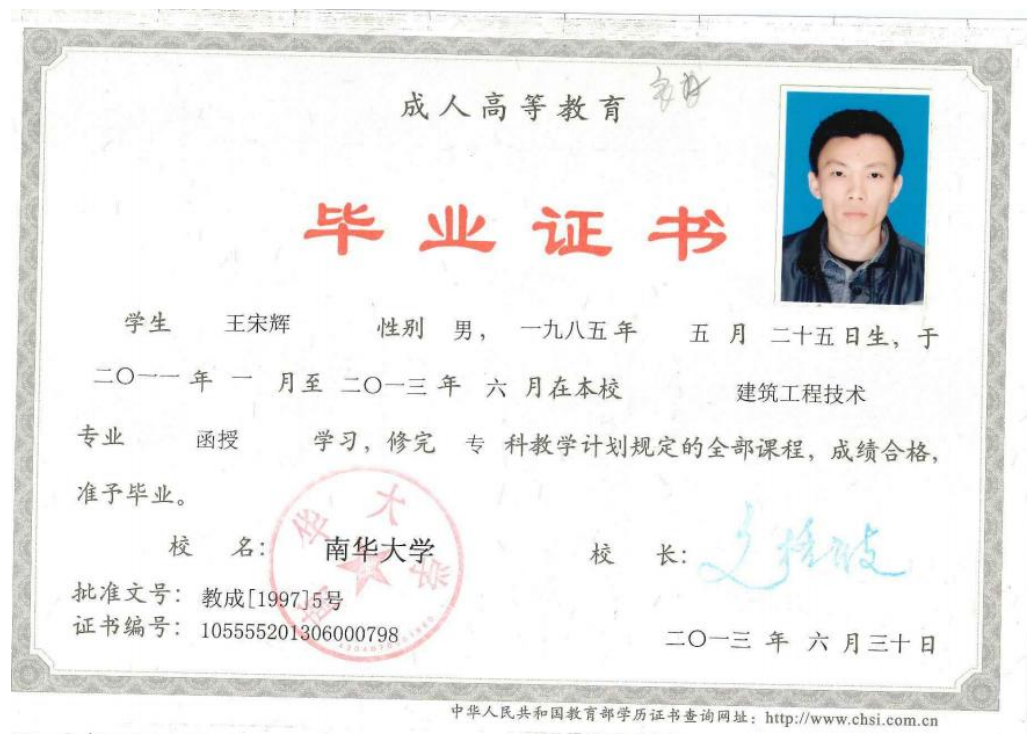 成人高等教育
毕业证书
学生 王宋辉 性别 男， 一九八五年 五 月 二十五日生，于
二〇一一年 一 月至 二〇一三年 六 月在本校 建筑工程技术
专业 函授 学习，修完 专 科教学计划规定的全部课程，成绩合格，
准予毕业。
校 名： 南华大学 校 长：
南华大学
批准文号： 教成[1997]5号
证书编号： 105555201306000798
二〇一三 年 六 月三十日
中华人民共和国教育部学历证书查询网址：http://www.chsi.com.cn